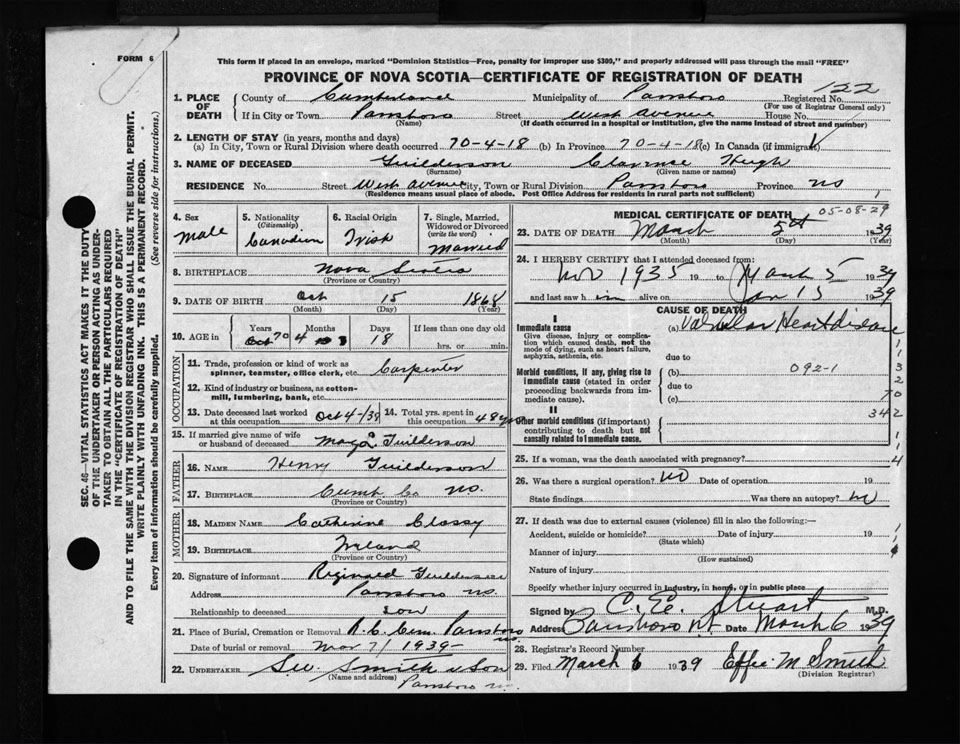 FORM 6
This form if placed in an envelope, marked "Dominion Statistics—Free, penalty for improper use $300," and properly addressed will pass through the mail "FREE"
PROVINCE OF NOVA SCOTIA—CERTIFICATE OF REGISTRATION OF DEATH
122
1. PLACE OF DEATH { County of Cumberland Municipality of Parrsboro Registered No.
(For use of Registrar General only)
If in City or Town Parrsboro Street West Avenue House No.
(Name) (If death occurred in a hospital or institution, give the name instead of street and number)
2. LENGTH OF STAY (in years, months and days)
(a) In City, Town or Rural Division where death occurred 70-4-18 (b) In Province 70-4-18 (c) In Canada (if immigrant)
3. NAME OF DECEASED Guilderson Clarence Hugh
(Surname) (Given name or names)
RESIDENCE No. Street West Avenue City, Town or Rural Division Parrsboro Province NS
(Residence means usual place of abode. Post Office Address for residents in rural parts not sufficient)
4. Sex Male
5. Nationality (Citizenship) Canadian
6. Racial Origin Irish
7. Single, Married, Widowed or Divorced (write the word) Married
8. BIRTHPLACE Nova Scotia
(Province or Country)
9. DATE OF BIRTH Oct 15 1868
(Month) (Day) (Year)
10. AGE in { Years 70 Months 4 Days 18 If less than one day old
hrs. or min.
OCCUPATION
11. Trade, profession or kind of work as spinner, teamster, office clerk, etc. Carpenter
12. Kind of industry or business, as cotton-mill, lumbering, bank, etc.
13. Date deceased last worked at this occupation Oct 4-/38 14. Total yrs. spent in this occupation 48 yrs
15. If married give name of wife or husband of deceased Guilderson
FATHER
16. NAME Henry Guilderson
17. BIRTHPLACE Cumb Co NS.
(Province or Country)
MOTHER
18. MAIDEN NAME Catherine Classy
19. BIRTHPLACE Ireland
(Province or Country)
20. Signature of informant Reginald Guilderson
Address Parrsboro NS.
Relationship to deceased Son
21. Place of Burial, Cremation or Removal R.C. Cem. Parrsboro NS.
Date of burial or removal Mar 7/ 1939
22. UNDERTAKER Smith & Son
(Name and address)
Parrsboro NS.
MEDICAL CERTIFICATE OF DEATH
05-08-29
23. DATE OF DEATH March 5th 1939
(Month) (Day) (Year)
24. I HEREBY CERTIFY that I attended deceased from:
Nov 1935 19 to March 5 1939
and last saw him alive on Jan 15 1939
CAUSE OF DEATH
I
Immediate cause
Give disease, injury or complication which caused death, not the mode of dying, such as heart failure, asphyxia, asthenia, etc.
(a) Valvular Heart disease
due to
Morbid conditions, if any, giving rise to immediate cause (stated in order proceeding backwards from immediate cause).
(b) 092-1
due to
(c)
II
Other morbid conditions (if important) contributing to death but not causally related to immediate cause.
1
1
3
2
70
342
1
1
4
25. If a woman, was the death associated with pregnancy?
26. Was there a surgical operation? No Date of operation 19
State findings Was there an autopsy? No
27. If death was due to external causes (violence) fill in also the following:—
Accident, suicide or homicide? Date of injury 19
(State which)
Manner of injury
(How sustained)
Nature of injury
Specify whether injury occurred in industry, in home, or in public place
Signed by C. E. Stuart M.D.
Address Parrsboro NS Date March 6 1939
28. Registrar's Record Number
29. Filed March 6 1939 Effie M Smith
(Division Registrar)
SEC. 46—VITAL STATISTICS ACT MAKES IT THE DUTY
OF THE UNDERTAKER OR PERSON ACTING AS UNDER-
TAKER TO OBTAIN ALL THE PARTICULARS REQUIRED
IN THE "CERTIFICATE OF REGISTRATION OF DEATH"
AND TO FILE THE SAME WITH THE DIVISION REGISTRAR WHO SHALL ISSUE THE BURIAL PERMIT.
WRITE PLAINLY WITH UNFADING INK. THIS IS A PERMANENT RECORD.
Every item of information should be carefully supplied. (See reverse side for instructions.)